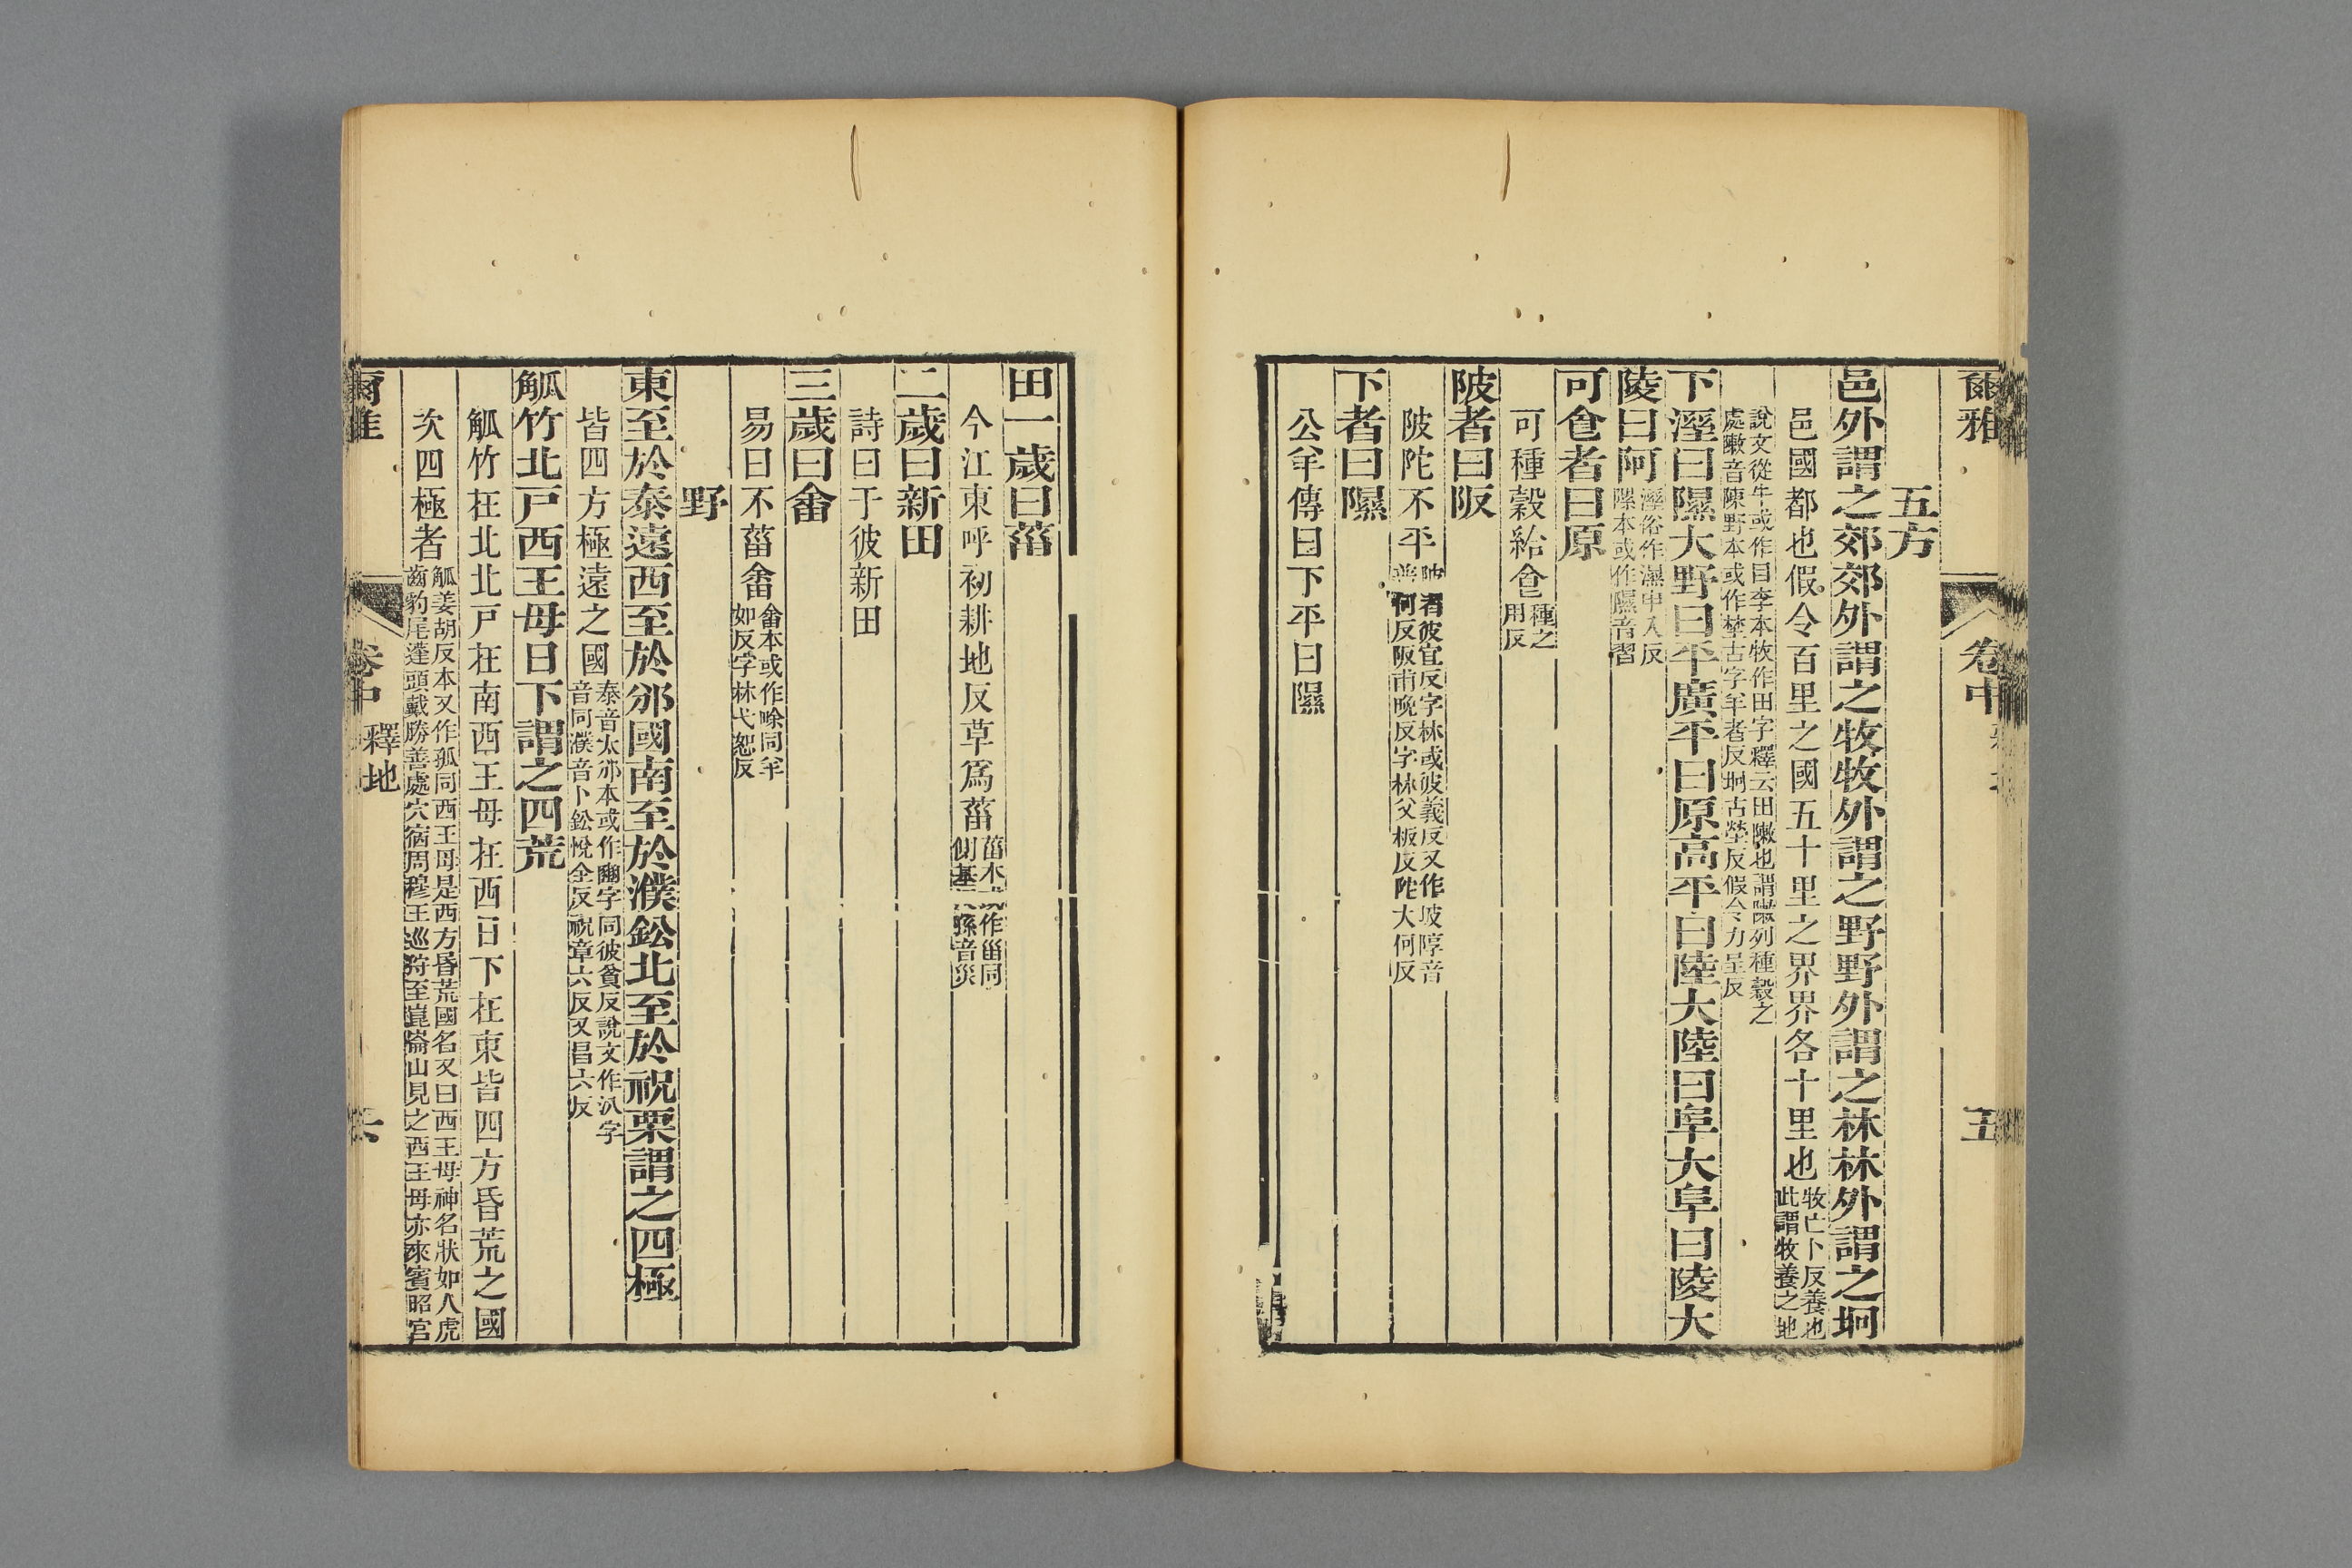 爾雅
卷中
五
五方
邑外謂之郊郊外謂之牧牧外謂之野野外謂之林林外謂之坰
邑國都也假令百里之國五十里之界界各十里也牧亡卜反養也
此謂牧養之地
說文從牛或作目李本牧作田字釋云田敶也謂敶列種穀之
處敶音陳野本或作埜古字羊者反坰古熒反假令力呈反
下溼曰隰大野曰平廣平曰原高平曰陸大陸曰阜大阜曰陵大
陵曰阿溼俗作濕申入反
隰本或作隰音習
可𠋑者曰原
可種穀給𠋑種之
用反
陂者曰阪
陂陀不平陂者彼宜反字林或彼義反又作坡𨹹音
普何反阪甫晚反字林父板反陀大何反
下者曰隰
公羊傳曰下平曰隰
田一歲曰菑
今江東呼初耕地反草爲菑菑本或作甾同
側基反孫音災
二歲曰新田
詩曰于彼新田
三歲曰畬
易曰不菑畬畬本或作㑒同羊
如反字林弋恕反
野
東至於泰遠西至於邠國南至於濮鈆北至於祝栗謂之四極
皆四方極遠之國泰音太邠本或作豳字同彼貧反說文作汃字
音同濮音卜鈆悅全反祝章六反又昌六反
觚竹北戸西王母日下謂之四荒
觚竹在北北戸在南西王母在西日下在東皆四方昏荒之國
次四極者觚姜胡反本又作孤同西王母是西方昏荒國名又曰西王母神名狀如人虎
齒豹尾蓬頭戴勝善處穴宿周穆王巡狩至崑崙山見之西王母亦來賓昭宮
爾雅
卷中
釋地
六